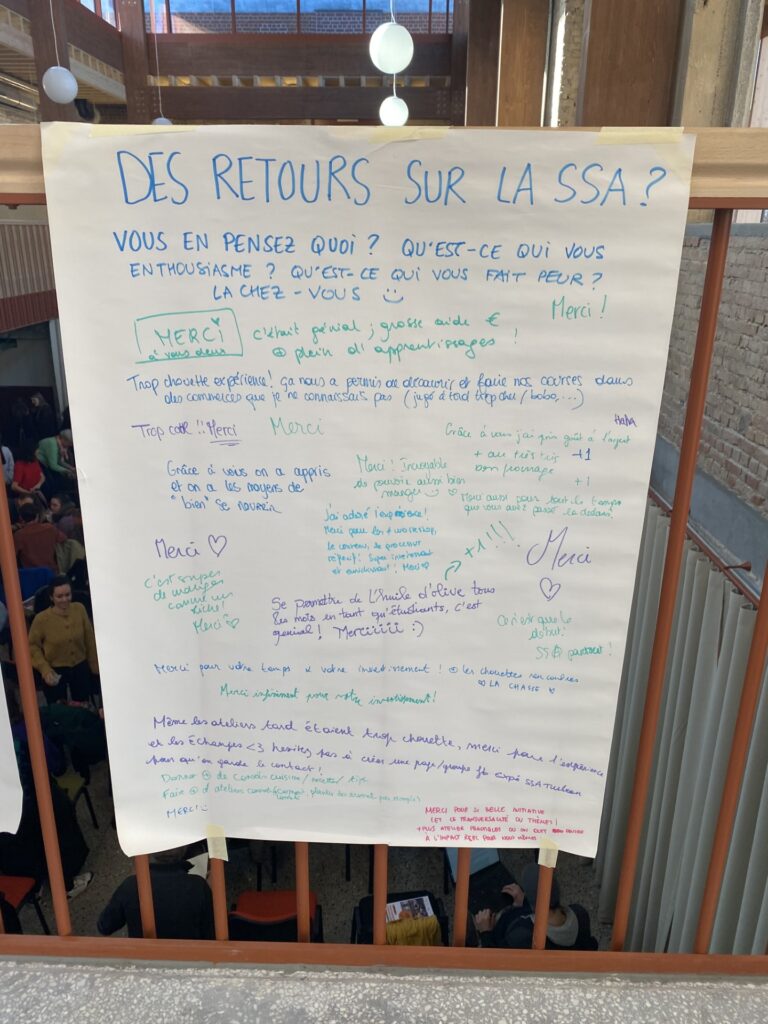 DES RETOURS SUR LA SSA ?
VOUS EN PENSEZ QUOI ? QU'EST-CE QUI VOUS
ENTHOUSIASME ? QU'EST-CE QUI VOUS FAIT PEUR ?
LA CHEZ-VOUS
Merci !
MERCI
à vous deux
c'était génial ; grosse aide €
⊕ plein d'apprentissages !
Trop chouette expérience ! ça nous a permis de découvrir et faire nos courses dans
des commerces que je ne connaissais pas (jugé à tard trop cher / bobo,...)
Haha
Trop cool !! Merci
Merci
Grâce à vous j'ai pris goût à l'argent
+ au très très +1
bon fromage
+1
Grâce à vous on a appris
et on a les moyens de
"bien" se nourrir
Merci ! Incroyable
de pouvoir aussi bien
manger
Merci aussi pour tout le temps
que vous avez passé là dedans.
J'ai adoré l'expérience !
Merci pour les workshop,
le contenu, le processus
réflexif ! Super intéressant
et enrichissant ! Merci
+1 !!!
Merci
Merci
C'est super
de manger
comme un
riche !
Merci
Se permettre de l'huile d'olive tous
les mois en tant qu'étudiants, c'est
génial ! Merciiiii :)
Ce n'est que le
début.
SSA partout !
Merci pour votre temps & votre investissement ! ⊕ les chouettes rencontres
LA CHASSE
Merci infiniment pour votre investissement !
Même les ateliers tard étaient trop chouette, merci pour l'expérience
et les échanges <3 hesitez pas à créer une page/groupe fb expé SSA
pour qu'on garde le contact !
Donner ⊕ de Conseils cuisine / recettes / tips
Faire ⊕ d'ateliers
MERCI
MERCI POUR SI BELLE INITIATIVE
(ET LA TRANSVERSALITÉ DU THÈMES)
+ PLUS ATELIER FAISABLES OU ON PEUT
À L'IMPACT RÉEL POUR NOUS MÊMES !